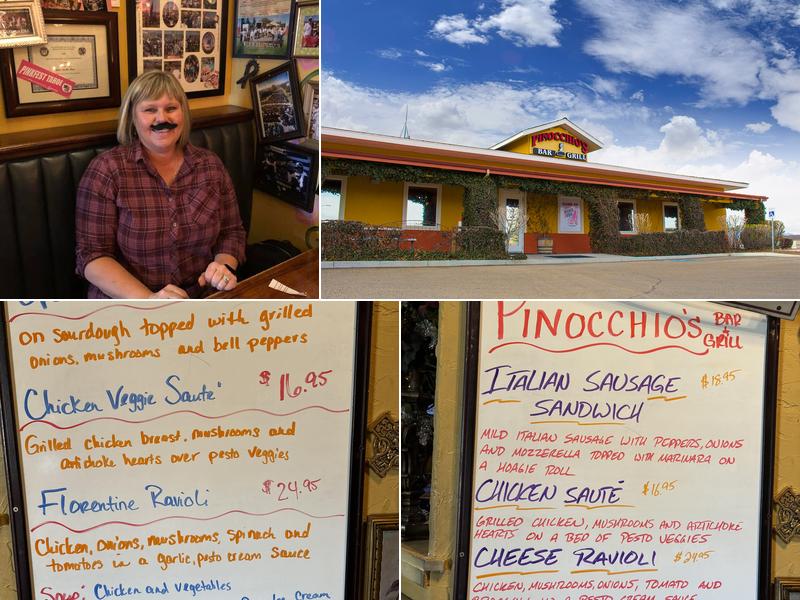 PINKFEST TAHOE
PINOCCHIO'S
BAR GRILL
on sourdough topped with grilled
onions, mushrooms and bell peppers
Chicken Veggie Sauté
$16.95
Grilled chicken breast, mushrooms and
artichoke hearts over pesto veggies
Florentine Ravioli
$24.95
Chicken, onions, mushrooms, spinach and
tomatoes in a garlic, pesto cream sauce
Soup: Chicken and vegetables
Cream
PINOCCHIO'S BAR & GRILL
ITALIAN SAUSAGE $18.95
SANDWICH
MILD ITALIAN SAUSAGE WITH PEPPERS, ONIONS
AND MOZZERELLA TOPPED WITH MARINARA ON
A HOAGIE ROLL
CHICKEN SAUTÉ $16.95
GRILLED CHICKEN, MUSHROOMS AND ARTICHOKE
HEARTS ON A BED OF PESTO VEGGIES
CHEESE RAVIOLI $24.95
CHICKEN, MUSHROOMS, ONIONS, TOMATO AND
PESTO CREAM SAUCE